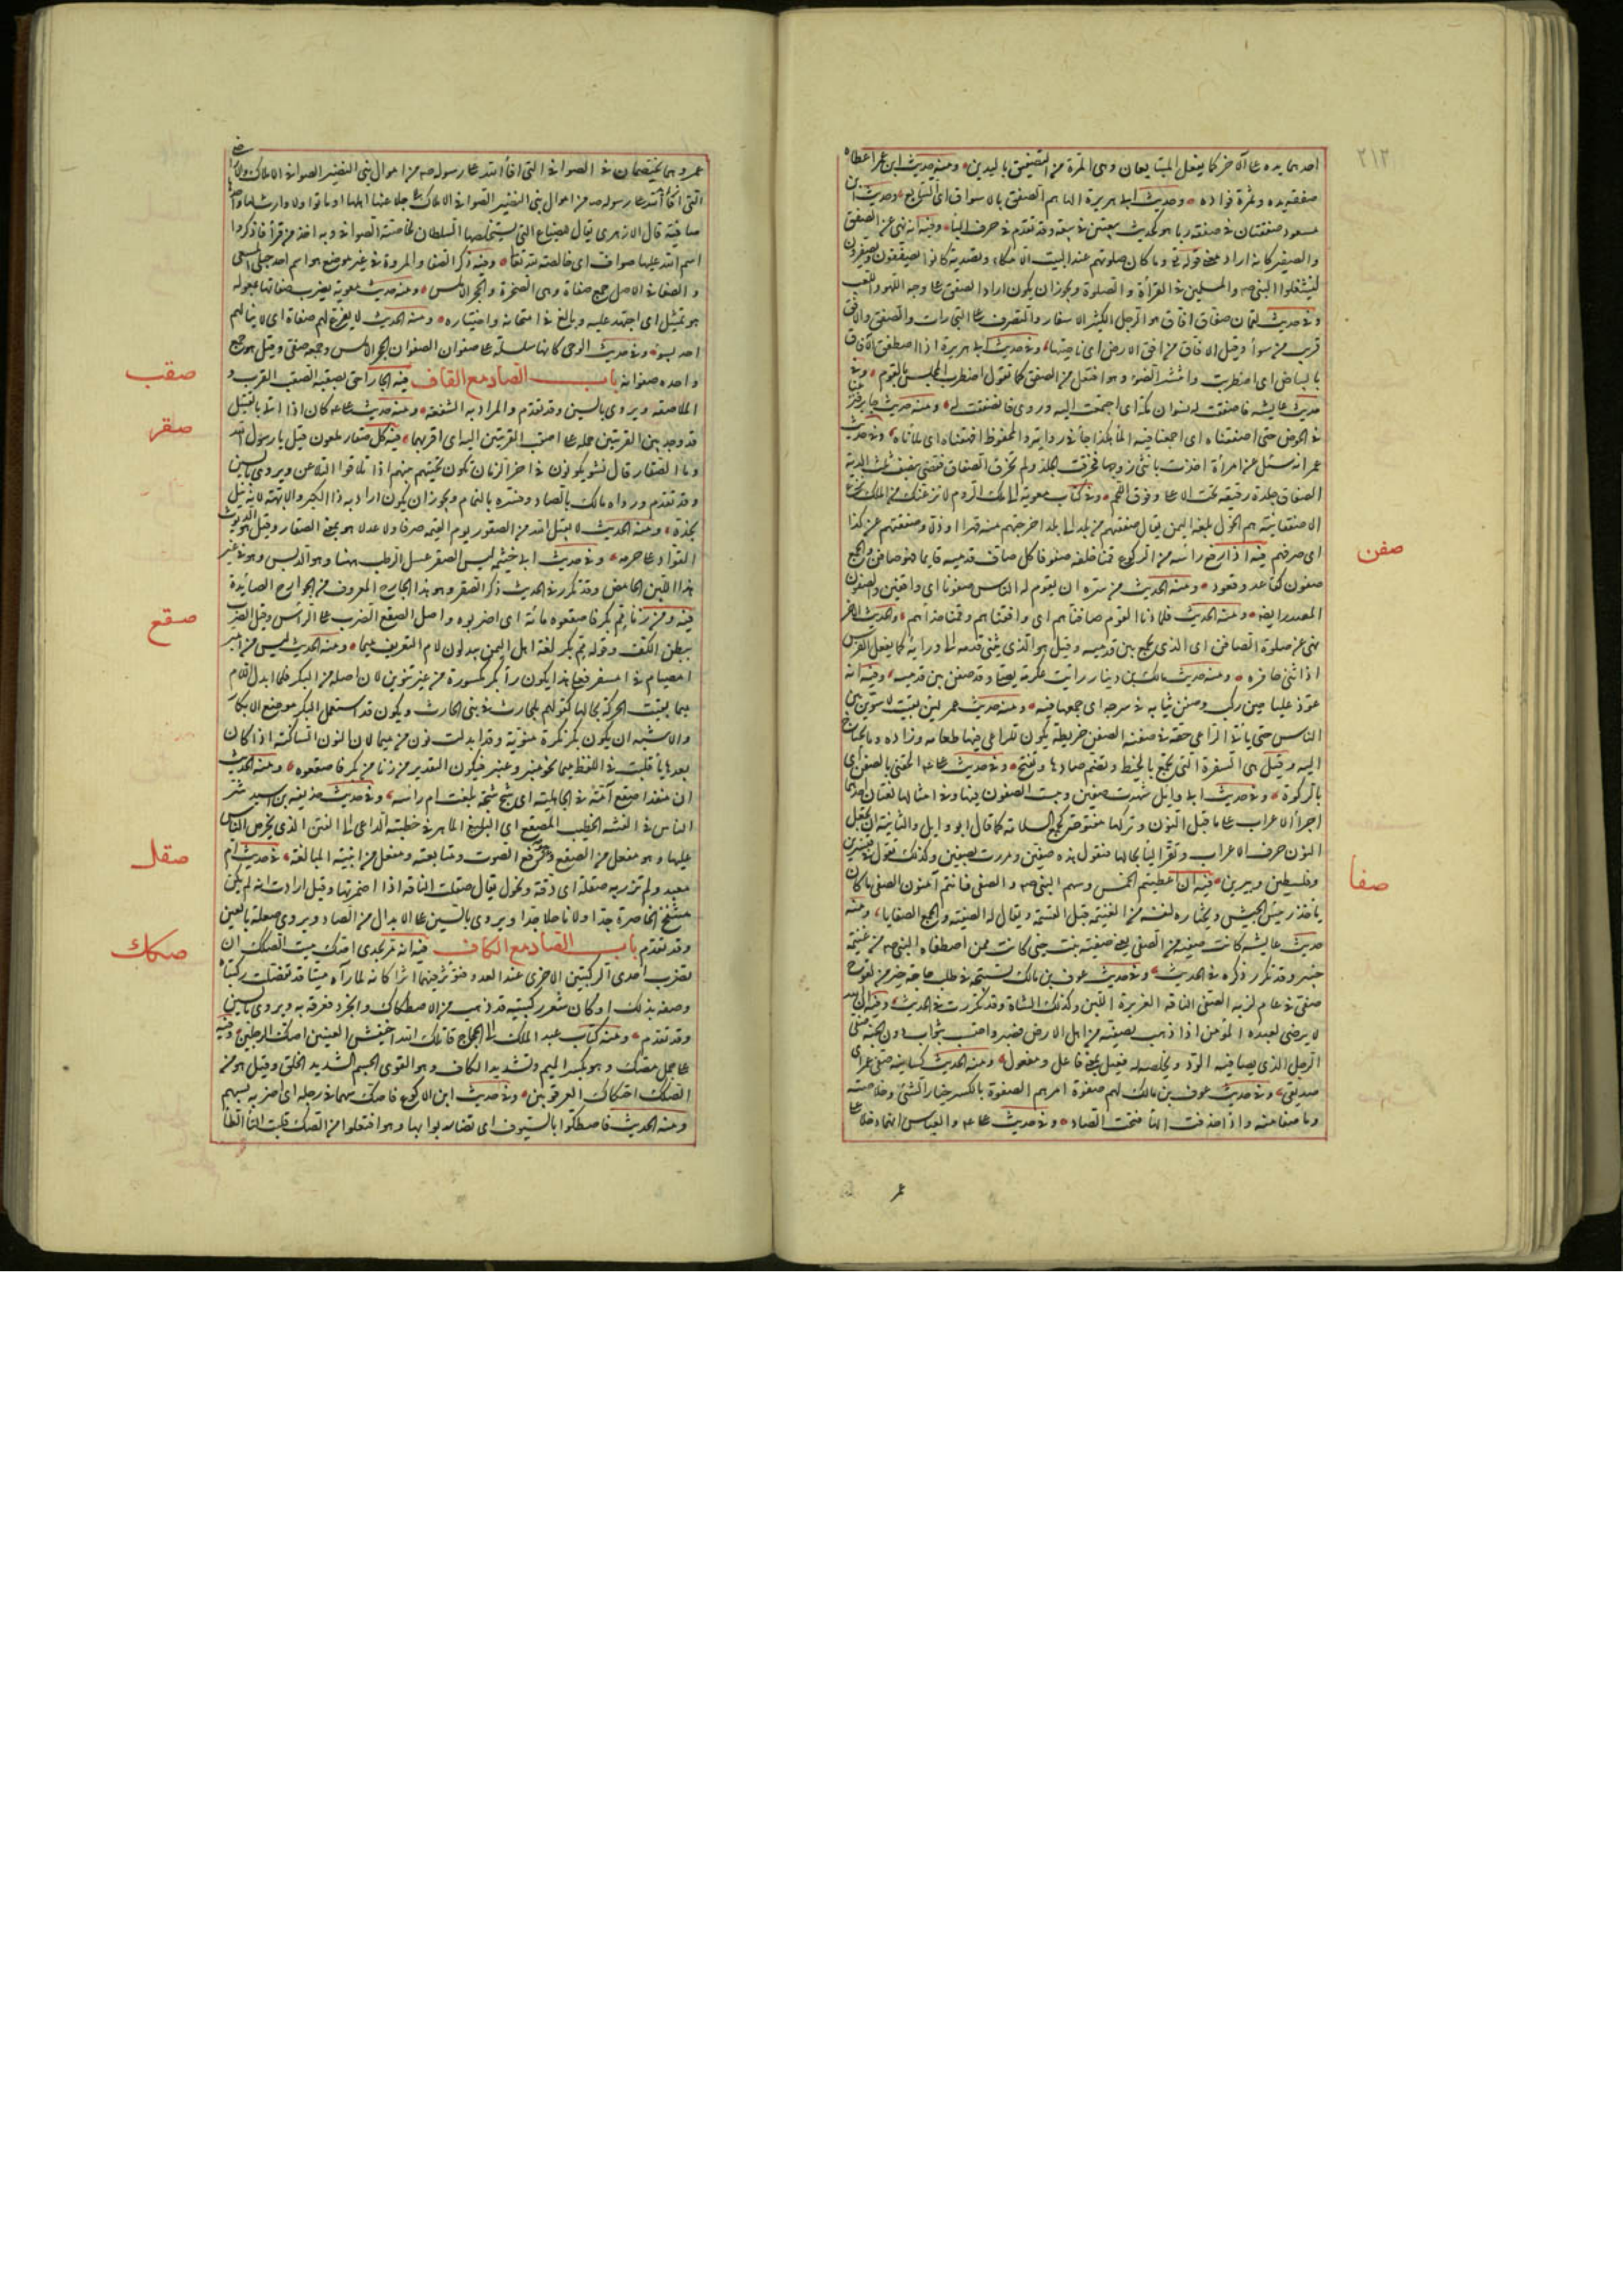 ٢١٢
احدهما يده على الآخر كما يفعل المتبايعان وهى المرة من التصفيق باليدين ومنه حديث ابن عمر اعطاه
صفقة يده وثمرة فؤاده وحديث ابى هريرة الهاهم الصفق بالاسواق اى التبايع وحديث ابن
مسعود صفقتان فى صفقة ربا هو كحديث بيعتين فى بيعة وقد تقدم فى حرف الباء وفيه انه نهى عن الصفق
والصفير كانه اراد معنى قوله تع وما كان صلوتهم عند البيت الا مكاء وتصدية كانوا يصفقون ويصفرون
ليشغلوا النبى صه والمسلمين فى القرأة والصلوة ويجوز ان يكون اراد الصفق على وجه اللهو واللعب
وفى حديث لقمان صفاق افاق هو الرجل الكثير الاسفار والتصرف على التجارات والصفق والافق
قريب من سوأ وقيل الافاق من افق الارض اى ناحيتها وفى حديث ابى هريرة اذا اصطفق الآفاق
بالبياض اى اضطرب وانتشر الضوء وهو افتعل من الصفق كما تقول اضطرب المجلس بالقوم وفى
حديث عايشه فاصفقت له نسوان مكة اى اجتمعت اليه وروى فانصفقت له ومنه حديث جابر فنزعنا
فى الحوض حتى اصفقناه اى اجمعنا فيه الماء هكذا جأ فى رواية والمحفوظ افهقناه اى ملأناه وفى حديث
عمر انه سئل عن امرأة اخذت بانثى زوجها فخرقت الجلد ولم تخرق الصفاق فقضى بنصف ثلث الدية
الصفاق جلدة رقيقة تحت الاعلا وفوق اللحم وفى كتاب معوية الى ملك الروم لانزعنك من الملك نزع
الاصفقانية هم الخول بلغة اليمن يقال صفقهم من بلد الى بلد اخرجهم منه قهرا وذلا وصفقهم عن كذا
اى صرفهم فيه اذا رفع رأسه من الركوع قمنا خلفه صفوفا كل صاف قدميه قايما فهو صافن والجمع
صفون كقاعد وقعود ومنه الحديث من سره ان يقوم له الناس صفونا اى واقفين والصفون
المصدر ايضا ومنه الحديث فلما دنا القوم صافناهم اى واقفناهم وقمنا حذاءهم والحديث الآخر
نهى عن صلوة الصافن اى الذى يجمع بين قدميه وقيل هو الذى يثنى قدمه الى ورايه كما يفعل الفرس
اذا ثنى حافره ومنه حديث مالك بن دينار رأيت عكرمة يصلى وقد صفن بين قدميه وفيه انه
عوذ عليا حين ركب وصفن ثيابه فى سرجه اى جمعها فيه ومنه حديث عمر لئن بقيت لاسوين بين
الناس حتى يأتى الراعى حقه فى صفنه الصفن خريطة يكون للراعى فيها طعامه وزاده وما يحتاج
اليه وقيل هى السفرة التى تجمع بالخيط وتضم صادها وتفتح وفى حديث على الحقنى بالصفن اى
بالركوة وفى حديث ابى وايل شهدت صفين وبئست الصفون فيها وفى امثالها لغتان احدهما
اجرأ الاعراب على ما قبل النون وتركها مفتوحة كجمع السلامة كما قال ابو وايل والثانية ان تجعل
النون حرف الاعراب وتقر اليأ بحالها فنقول هذه صفين ومررت بصفين وكذلك تقول فى قنسرين
وفلسطين ويبرين فيه ان اعطيتم الخمس وسهم النبى صه والصفى فانتم آمنون الصفى ما كان
يأخذه رئيس الجيش ويختاره لنفسه من الغنيمة قبل القسمة ويقال له الصفية والجمع الصفايا ومنه
حديث عايشه كانت صفية من الصفى يعنى صفية بنت حيى كانت ممن اصطفاه النبى صه من غنيمة
خيبر وقد تكرر ذكره فى الحديث وفى حديث عوف بن مالك تسبيحة فى طلب حاجة خير من لقوح
صفى فى عام لزبه الصفى الناقة الغزيرة اللبن وكذلك الشاة وقد تكررت فى الحديث وفيه ان الله
لا يرضى لعبده المؤمن اذا ذهب بصفيه من اهل الارض فصبر واحتسب بثواب دون الجنة صفى
الرجل الذى يصافيه الود ويخلصه له فعيل بمعنى فاعل ومفعول ومنه الحديث كسانيه صفيى عمر اى
صديقى وفى حديث عوف بن مالك لهم صفوة امرهم الصفوة بالكسر خيار الشئ وخلاصته
وما صفا منه واذا حذفت الهأ فتحت الصاد وفى حديث على والعباس انهما دخلا على
عمر
صفن
صفا
عمر وهما يختصمان فى الصوافى التى افأ الله على رسوله صه من اموال بنى النضير الصوافى الاملاك والارض
التى جلا عنها اهلها او ماتوا ولا وارث لها واحدها
صافية قال الازهرى يقال للضياع التى يستخلصها السلطان لخاصته الصوافى وبه اخذ من قرأ فاذكروا
اسم الله عليها صوافى اى خالصة لله تعا وفيه ذكر الصفا والمروة فى غير موضع هو اسم احد جبلى المسعى
والصفا فى الاصل جمع صفاة وهى الصخرة والحجر الاملس ومنه حديث معوية يضرب صفاتها بمعوله
هو تمثيل اى اجتهد عليه وبالغ فى امتحانه واختباره ومنه الحديث لا يقرع لهم صفاة اى لا ينالهم
احد بسوء وفى حديث الوحى كانها سلسلة على صفوان الصفوان الحجر الاملس وجمعه صفى وقيل هو جمع
واحده صفوانه باب الصاد مع القاف فيه الجار احق بصقبه الصقب القرب و
الملاصقة ويروى بالسين وقد تقدم والمراد به الشفعة ومنه حديث على كان اذا اتى بالقتيل
قد وجد بين القريتين حمله على اصقب القريتين اليه اى اقربهما فيه كل صقار ملعون قيل يا رسول الله
وما الصقار قال نشو يكونون فى اخر الزمان تكون تحيتهم بينهم اذا تلاقوا التلاعن ويروى بالسين
وقد تقدم ورواه مالك بالصاد وفسره بالنمام ويجوز ان يكون اراد به ذا الكبر والابهة لانه يميل
بخده ومنه الحديث لا يقبل الله من الصقور يوم القيمة صرفا ولا عدلا هو بمعنى الصقار وقيل هو الديوث
القواد على حرمه وفى حديث ابى خيثمه ليس الصقر عسل الرطب ههنا وهو الدبس وهو فى غير
هذا اللبن الحامض وقد تكرر فى الحديث ذكر الصقر وهو هذا الجارح المعروف من الجوارح الصائدة
فيه ومن زنا مم بكر فاصقعوه مائة اى اضربوه واصل الصقع الضرب على الرأس وقيل الضرب
ببطن الكف وقوله مم بكر لغة اهل اليمن يبدلون لام التعريف ميما ومنه الحديث ليس من امبر
امصيام فى امسفر فعلى هذا يكون رأ بكر مكسورة من غير تنوين لان اصله من البكر فلما ابدل اللام
ميما بقيت الحركة بحالها كقولهم بلحارث فى بنى الحارث ويكون قد استعمل البكر موضع الابكار
والاشبه ان يكون بكر نكرة منونة وقد ابدلت نون من ميما لان النون الساكنة اذا كان
بعدها بأ قلبت فى اللفظ ميما نحو منبر وعنبر فيكون التقدير من زنا من بكر فاصقعوه ومنه الحديث
ان منقذا صقع آمة فى الجاهلية اى شج شجة بلغت ام رأسه وفى حديث حذيفه بن اسيد شر
الناس فى الفتنة الخطيب المصقع اى البليغ الماهر فى خطبته الداعى الى الفتن الذى يحرض الناس
عليها وهو مفعل من الصقع رفع الصوت ومتابعته ومفعل من ابنية المبالغة فى حديث ام
معبد ولم تزر به صقلة اى دقة ونحول يقال صقلت الناقة اذا اضمرتها وقيل ارادت انه لم يكن
منتفخ الخاصرة جدا ولا ناحلا جدا ويروى بالسين على الابدال من الصاد ويروى صعلة بالعين
وقد تقدم باب الصاد مع الكاف فيه انه مر بجدى اصك ميت الصكك ان
تضرب احدى الركبتين الاخرى عند العدو فتؤثر فيهما اثرا كانه لما رآه ميتا قد تقلصت ركبتاه
وصفه بذلك او كان شعر ركبتيه قد ذهب من الاصطكاك وانجرد فعرفه به ويروى بالسين
وقد تقدم ومنه كتاب عبد الملك الى الحجاج قاتلك الله اخيفش العينين اصك الرجلين وفيه
على جمل مصك وهو بكسر الميم وتشديد الكاف وهو القوى الجسم الشديد الخلق وقيل هو من
الصكك احتكاك العرقوبين وفى حديث ابن الاكوع فاصك سهما فى رجله اى اضربه بسهم
ومنه الحديث فاصطكوا بالسيوف اى تضاربوا بها وهو افتعلوا من الصك قلبت التأ طأ
صقب
صقر
صقع
صقل
صكك